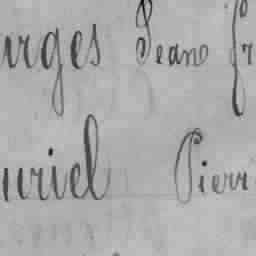 urges Jean fr
uriel Pierr